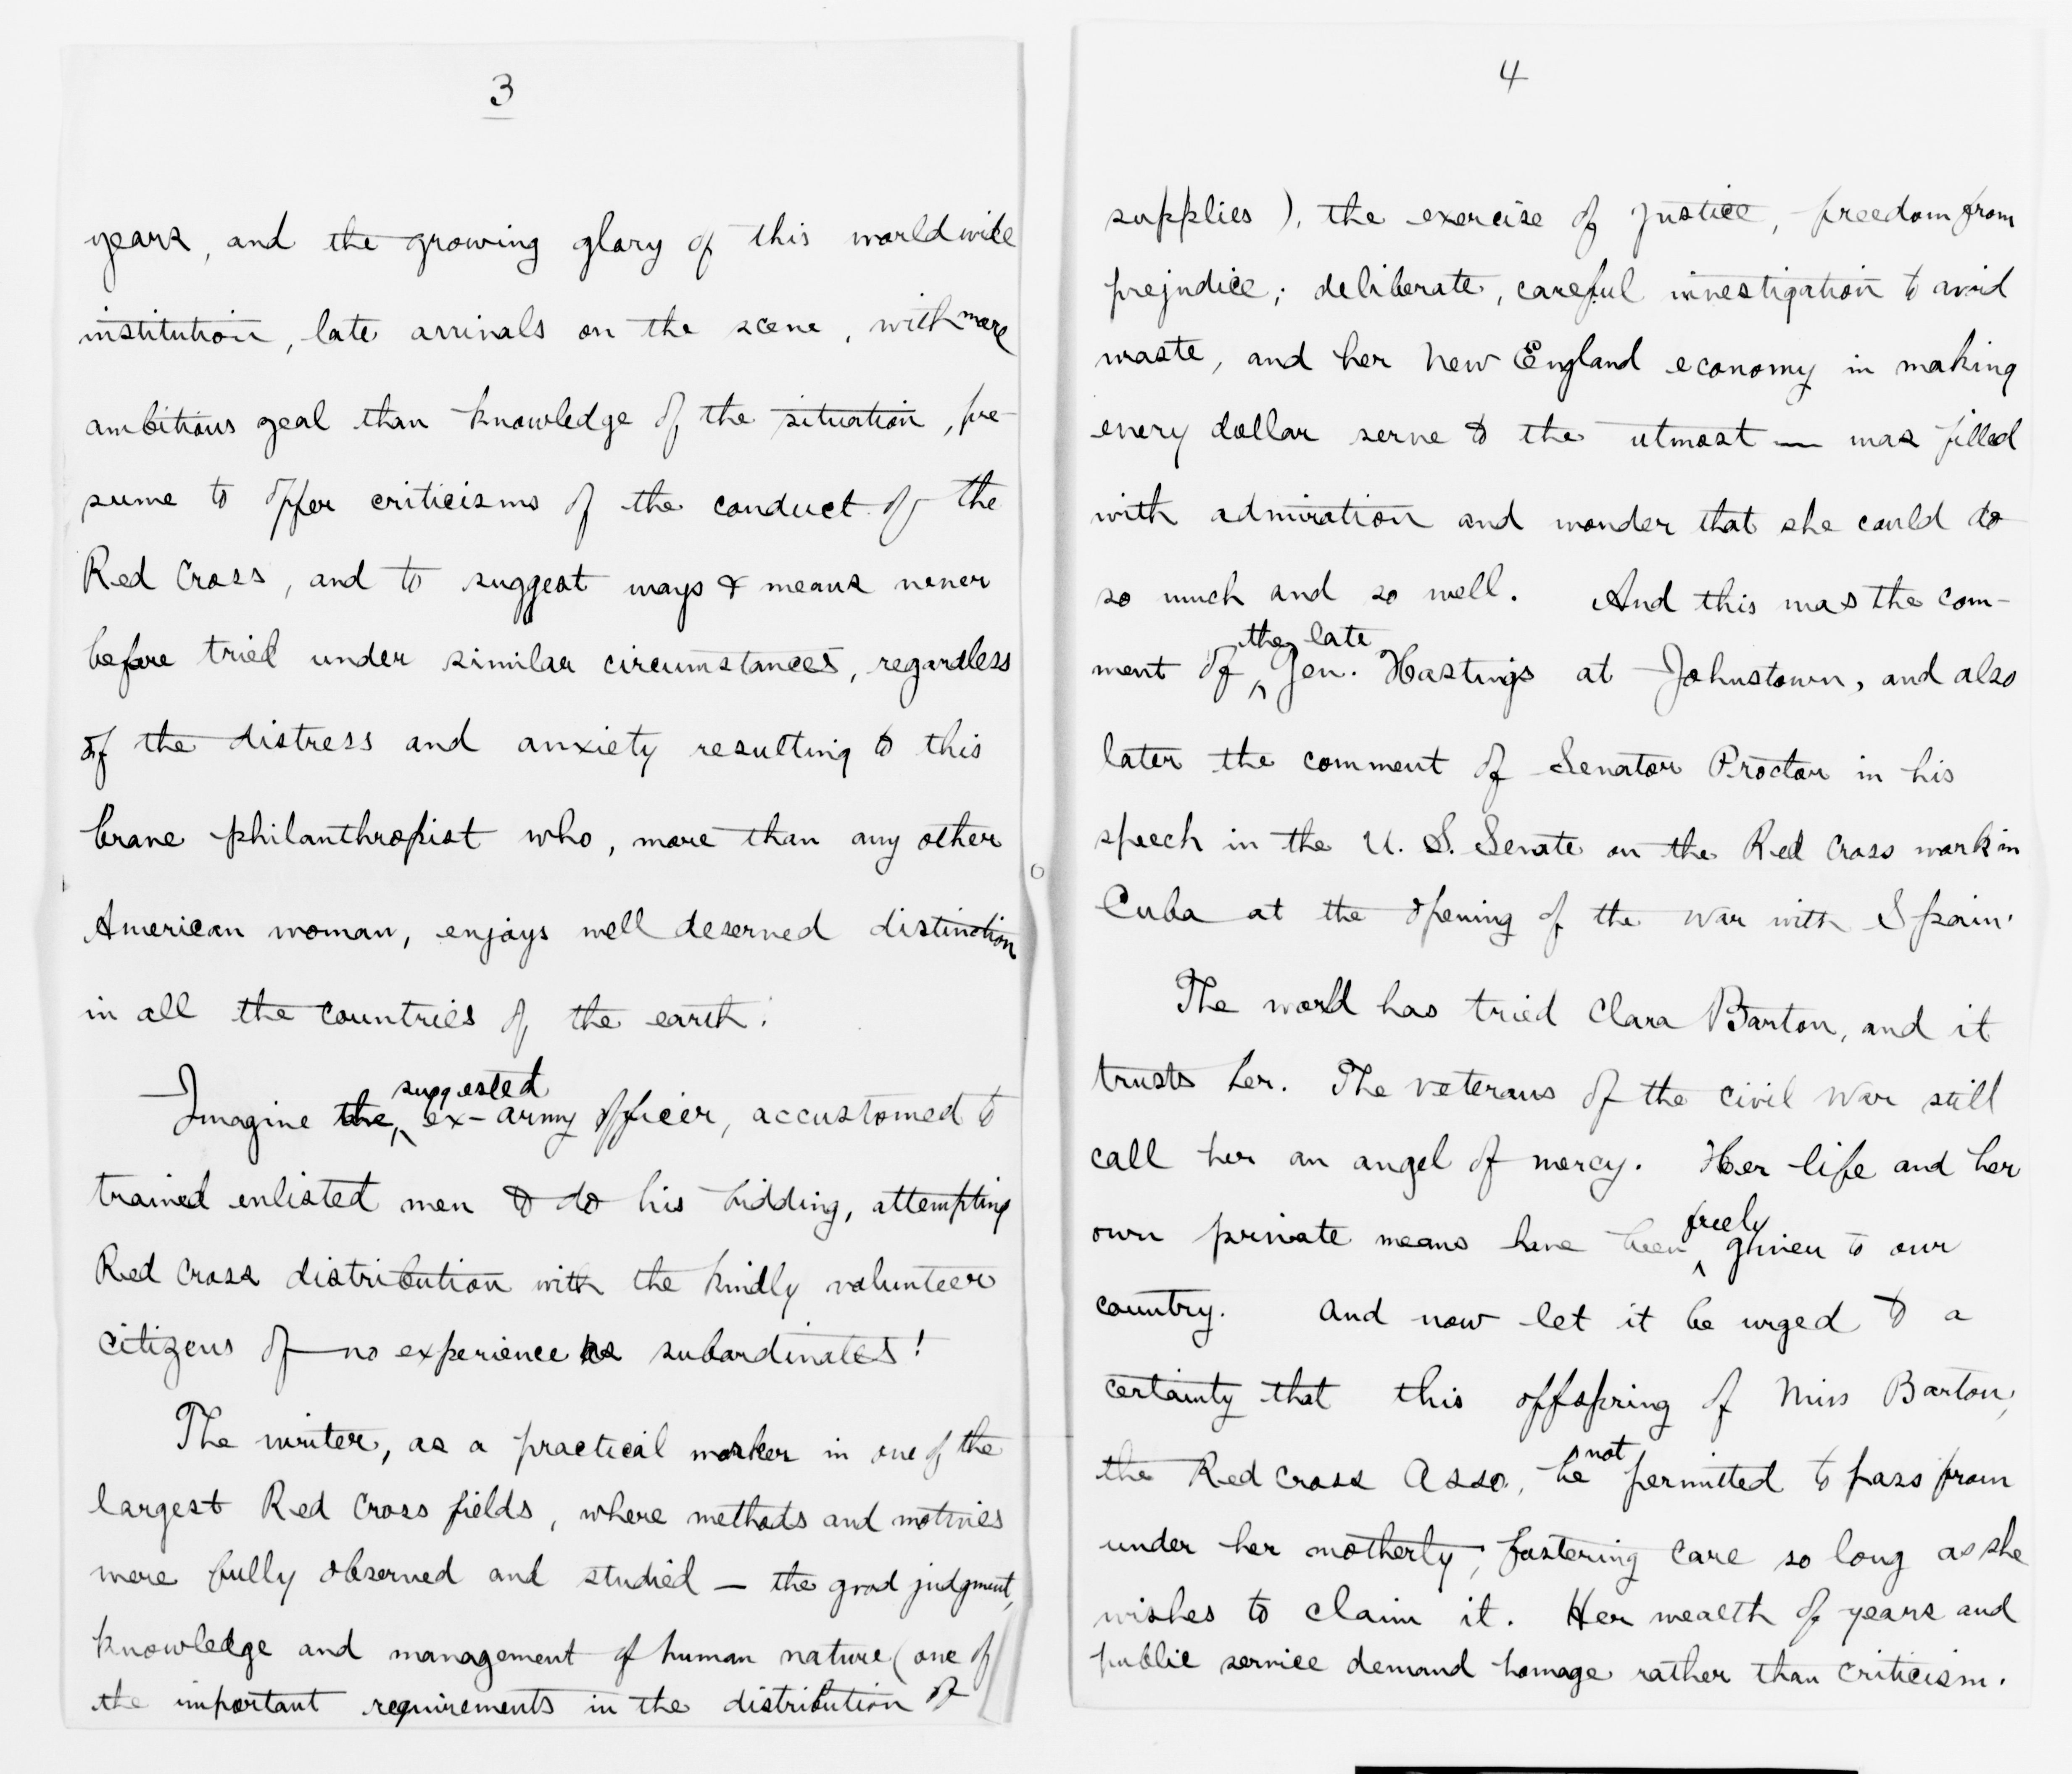 3
years, and the growing glory of this world wide
institution, late arrivals on the scene, with more
ambitious zeal than knowledge of the situation, pre-
sume to offer criticisms of the conduct of the
Red Cross, and to suggest ways & means never
before tried under similar circumstances, regardless
of the distress and anxiety resulting to this
brave philanthropist who, more than any other
American woman, enjoys well deserved distinction
in all the countries of the earth.
Imagine the suggested ex-army officer, accustomed to
trained enlisted men to do his bidding, attempting
Red Cross distribution with the kindly volunteer
citizens of no experience as subordinates!
The writer, as a practical worker in one of the
largest Red Cross fields, where methods and motives
were fully observed and studied — the good judgment,
knowledge and management of human nature (one of
the important requirements in the distribution of
4
supplies), the exercise of justice, freedom from
prejudice; deliberate, careful investigation to avoid
waste, and her New England economy in making
every dollar serve to the utmost — was filled
with admiration and wonder that she could do
so much and so well. And this was the com-
ment of the late Gen. Hastings at Johnstown, and also
later the comment of Senator Proctor in his
speech in the U. S. Senate on the Red Cross work in
Cuba at the opening of the war with Spain.
The world has tried Clara Barton, and it
trusts her. The veterans of the civil war still
call her an angel of mercy. Her life and her
own private means have been freely given to our
country. And now let it be urged to a
certainty that this offspring of Miss Barton,
the Red Cross Asso., be not permitted to pass from
under her motherly, fostering care so long as she
wishes to claim it. Her wealth of years and
public service demand homage rather than criticism.